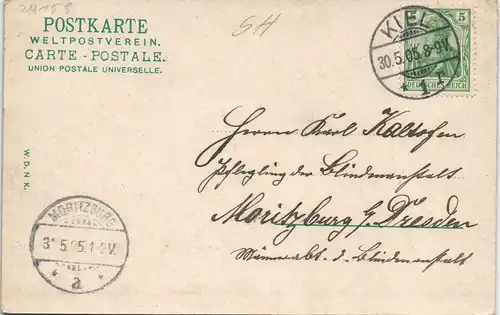 24153
SH
POSTKARTE
WELTPOSTVEREIN.
CARTE - POSTALE.
UNION POSTALE UNIVERSELLE.
KIEL
30.5.05.8-9V.
* 1 r
5
DEUTSCHES REICH
W. D. N. K.
Herrn Karl Kaltofen
Pflegling der Blindenanstalt
Moritzburg b/ Dresden
Männerabt. d. Blindenanstalt
MORITZBURG
31.5.05.1-2V.
* a *